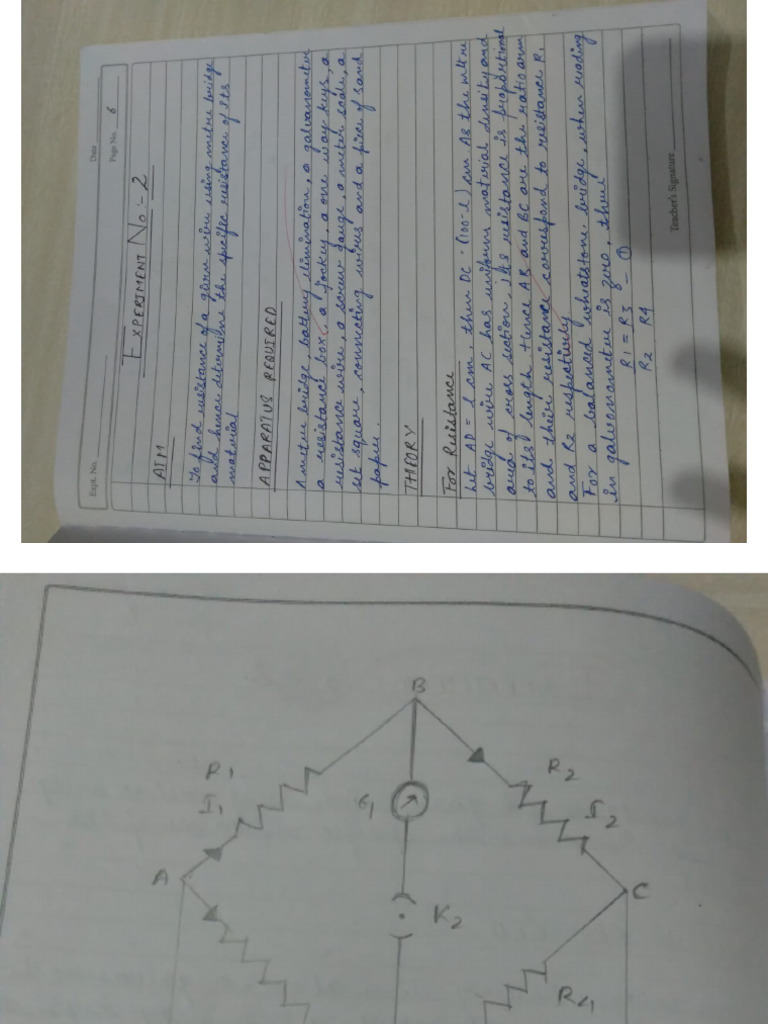 Expt. No.
Date
Page No. 6
EXPERIMENT No:- 2
AIM
To find resistance of a given wire using metre bridge
and hence determine the specific resistance of its
material
APPARATUS REQUIRED
A metre bridge, battery elimination, a galvanometer
a resistance box, a jockey, a one way keys, a
resistance wire, a screw gauge, a meter scale, a
set square, connecting wires and a piece of sand
paper.
THEORY
For Resistance
Let AD = l cm, then DC = (100-l) cm As the metre
bridge wire AC has uniform material density and
area of cross section, its resistance is proportional
to its length Hence AB and BC are the ratio arm
and their resistance correspond to resistance R1
and R2 respectively
For a balanced whatstone bridge, when reading
in galvanometer is zero, then
R1 = R3 - ①
R2 R4
Teacher's Signature
B
R1
I1
R2
I2
G
A
C
K2
R4